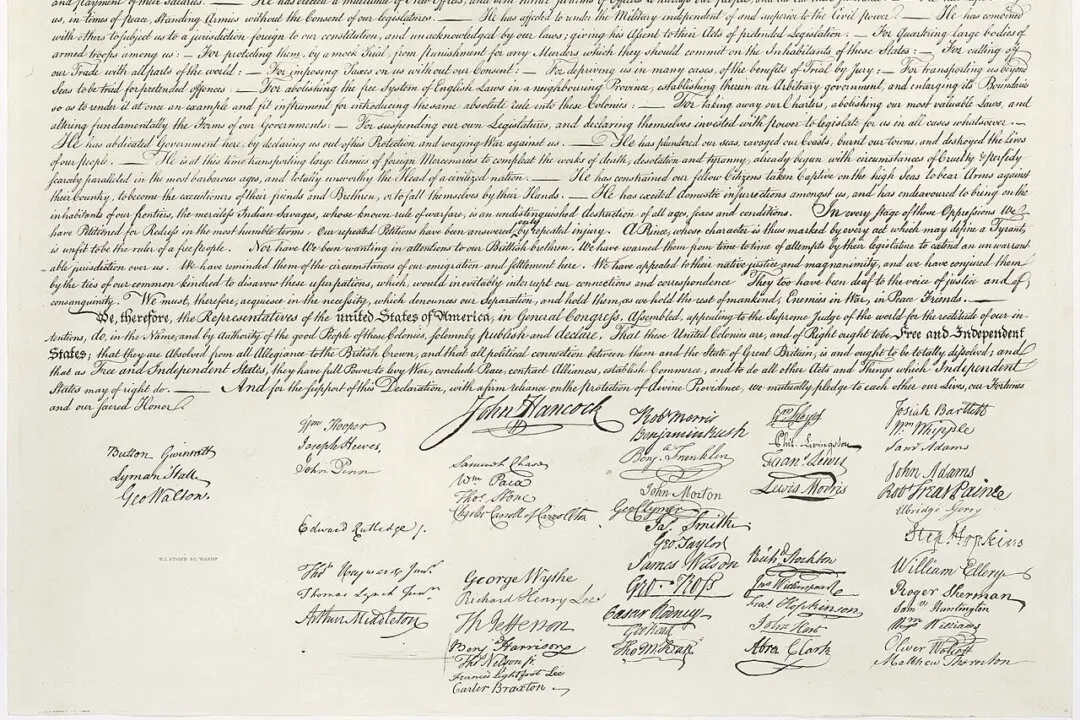 and payment of their salaries. — He has erected a multitude of New Offices, and sent hither swarms of Officers to harrass our people, and eat out their substance. — He has kept among
us, in times of peace, Standing Armies without the Consent of our legislatures. — He has affected to render the Military independent of and superior to the Civil power. — He has combined
with others to subject us to a jurisdiction foreign to our constitution, and unacknowledged by our laws; giving his Assent to their Acts of pretended Legislation: — For Quartering large bodies of
armed troops among us: — For protecting them, by a mock Trial, from punishment for any Murders which they should commit on the Inhabitants of these States: — For cutting off
our Trade with all parts of the world: — For imposing Taxes on us without our Consent: — For depriving us in many cases, of the benefits of Trial by Jury: — For transporting us beyond
Seas to be tried for pretended offences: — For abolishing the free System of English Laws in a neighbouring Province, establishing therein an Arbitrary government, and enlarging its Boundaries
so as to render it at once an example and fit instrument for introducing the same absolute rule into these Colonies: — For taking away our Charters, abolishing our most valuable Laws, and
altering fundamentally the Forms of our Governments: — For suspending our own Legislatures, and declaring themselves invested with power to legislate for us in all cases whatsoever. —
He has abdicated Government here, by declaring us out of his Protection and waging War against us. — He has plundered our seas, ravaged our Coasts, burnt our towns, and destroyed the lives
of our people. — He is at this time transporting large Armies of foreign Mercenaries to compleat the works of death, desolation and tyranny, already begun with circumstances of Cruelty & perfidy
scarcely paralleled in the most barbarous ages, and totally unworthy the Head of a civilized nation. — He has constrained our fellow Citizens taken Captive on the high Seas to bear Arms against
their Country, to become the executioners of their friends and Brethren, or to fall themselves by their Hands. — He has excited domestic insurrections amongst us, and has endeavoured to bring on the
inhabitants of our frontiers, the merciless Indian Savages, whose known rule of warfare, is an undistinguished destruction of all ages, sexes and conditions. In every stage of these Oppressions We
have Petitioned for Redress in the most humble terms: Our repeated Petitions have been answered only by repeated injury. A Prince, whose character is thus marked by every act which may define a Tyrant,
is unfit to be the ruler of a free people. Nor have We been wanting in attentions to our Brittish brethren. We have warned them from time to time of attempts by their legislature to extend an unwarrant-
able jurisdiction over us. We have reminded them of the circumstances of our emigration and settlement here. We have appealed to their native justice and magnanimity, and we have conjured them
by the ties of our common kindred to disavow these usurpations, which, would inevitably interrupt our connections and correspondence They too have been deaf to the voice of justice and of
consanguinity. We must, therefore, acquiesce in the necessity, which denounces our Separation, and hold them, as we hold the rest of mankind, Enemies in War, in Peace Friends. —
We, therefore, the Representatives of the united States of America, in General Congress, Assembled, appealing to the Supreme Judge of the world for the rectitude of our in-
tentions, do, in the Name, and by Authority of the good People of these Colonies, solemnly publish and declare, That these United Colonies are, and of Right ought to be Free and Independent
States; that they are Absolved from all Allegiance to the British Crown, and that all political connection between them and the State of Great Britain, is and ought to be totally dissolved; and
that as Free and Independent States, they have full Power to levy War, conclude Peace, contract Alliances, establish Commerce, and to do all other Acts and Things which Independent
States may of right do. — And for the support of this Declaration, with a firm reliance on the protection of divine Providence, we mutually pledge to each other our Lives, our Fortunes
and our sacred Honor.
Button Gwinnett
Lyman Hall
Geo Walton.
W.J. STONE SC. WASHN
Wm Hooper
Joseph Hewes,
John Penn
Edward Rutledge /.
Thos Heyward Junr.
Thomas Lynch Junr.
Arthur Middleton
John Hancock
Samuel Chase
Wm Paca
Thos Stone
Charles Carroll of Carrollton
George Wythe
Richard Henry Lee
Th Jefferson
Benj Harrison
Thos Nelson jr.
Francis Lightfoot Lee
Carter Braxton
Robt Morris
Benjamin Rush
Benj. Franklin
John Morton
Geo Clymer
Jas. Smith
Geo. Taylor
James Wilson
Geo. Ross
Caesar Rodney
Geo Read
Tho M:Kean
Wm Floyd
Phil. Livingston
Frans. Lewis
Lewis Morris
Richd. Stockton
Jno Witherspoon
Fras. Hopkinson
John Hart
Abra Clark
Josiah Bartlett
Wm Whipple
Saml Adams
John Adams
Robt Treat Paine
Elbridge Gerry
Step. Hopkins
William Ellery
Roger Sherman
Saml Huntington
Wm Williams
Oliver Wolcott
Matthew Thornton